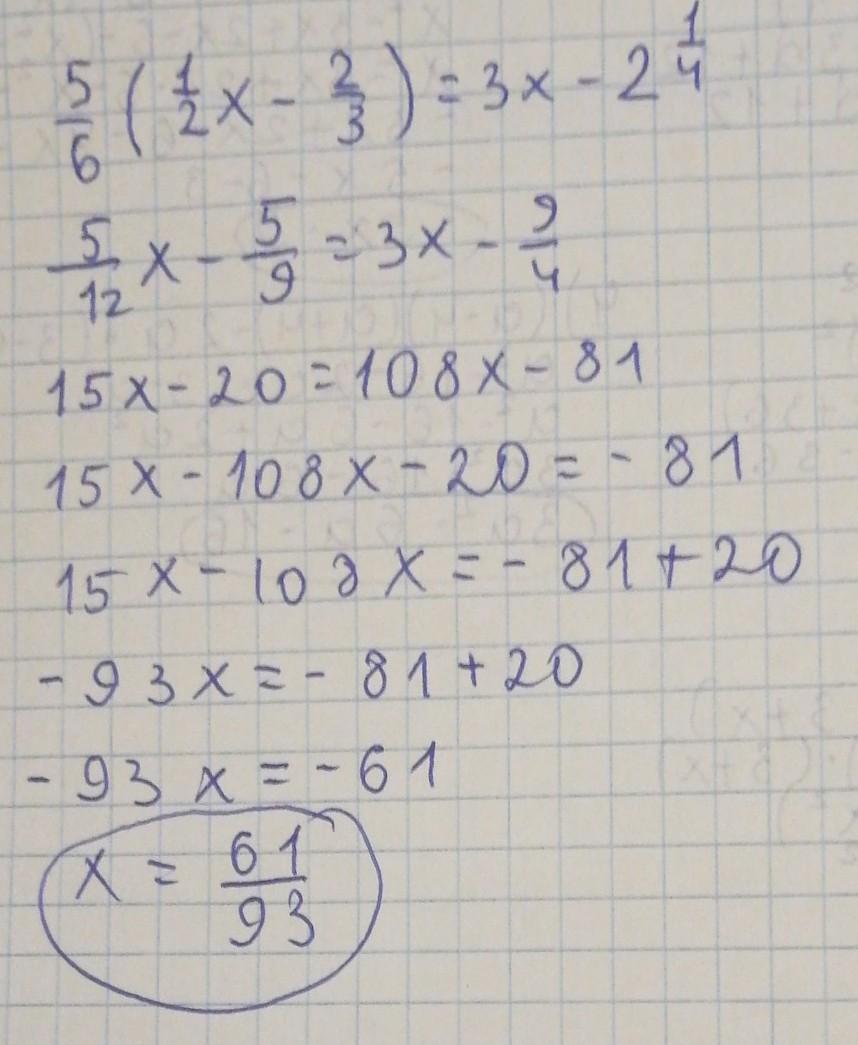 5/6 (1/2 x - 2/3) = 3x - 2 1/4
5/12 x - 5/9 = 3x - 9/4
15x - 20 = 108x - 81
15x - 108x - 20 = - 81
15x - 108x = - 81 + 20
- 93x = - 81 + 20
- 93x = - 61
x = 61/93